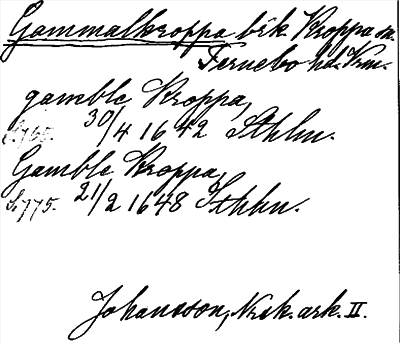 Gammalkroppa brk. Kroppa sn.
Fernebo hd. Vrm.
gamble Kroppa,
S. 765. 30/4 1642 Sthlm.
Gamble Kroppa,
S. 775. 21/2 1648 Sthlm.
Johansson, Norsk. ark. II.